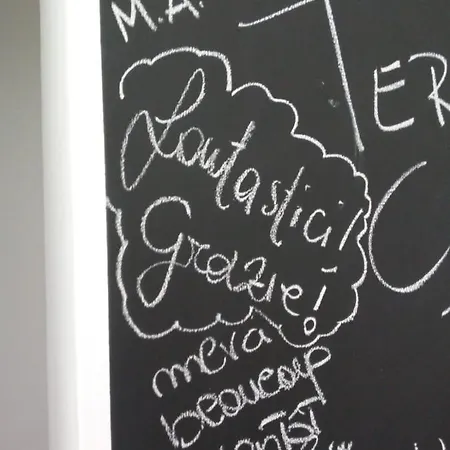 M.A.
TER
Fantastici!
Grazie!
merci
beaucoup